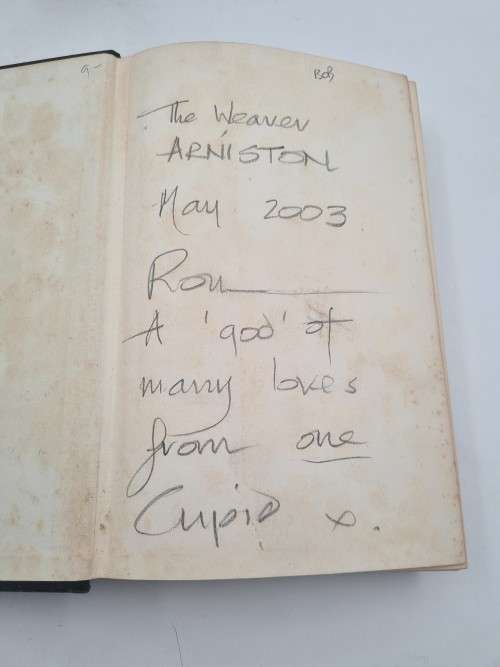 The Weaver
ARNISTON
May 2003
Ron
A 'god' of
many loves
from one
Cupid x.